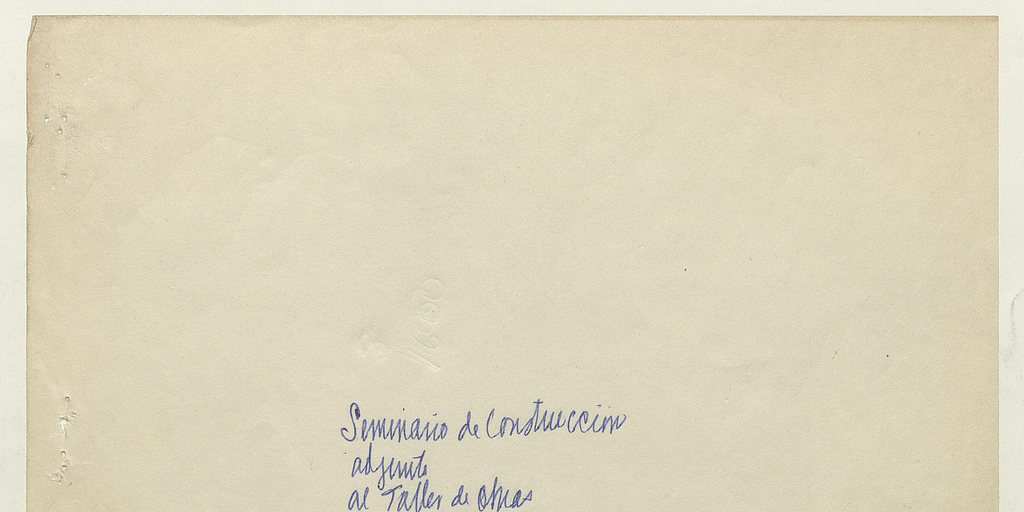 Seminario de Construccion
adjunto
al Taller de Obras